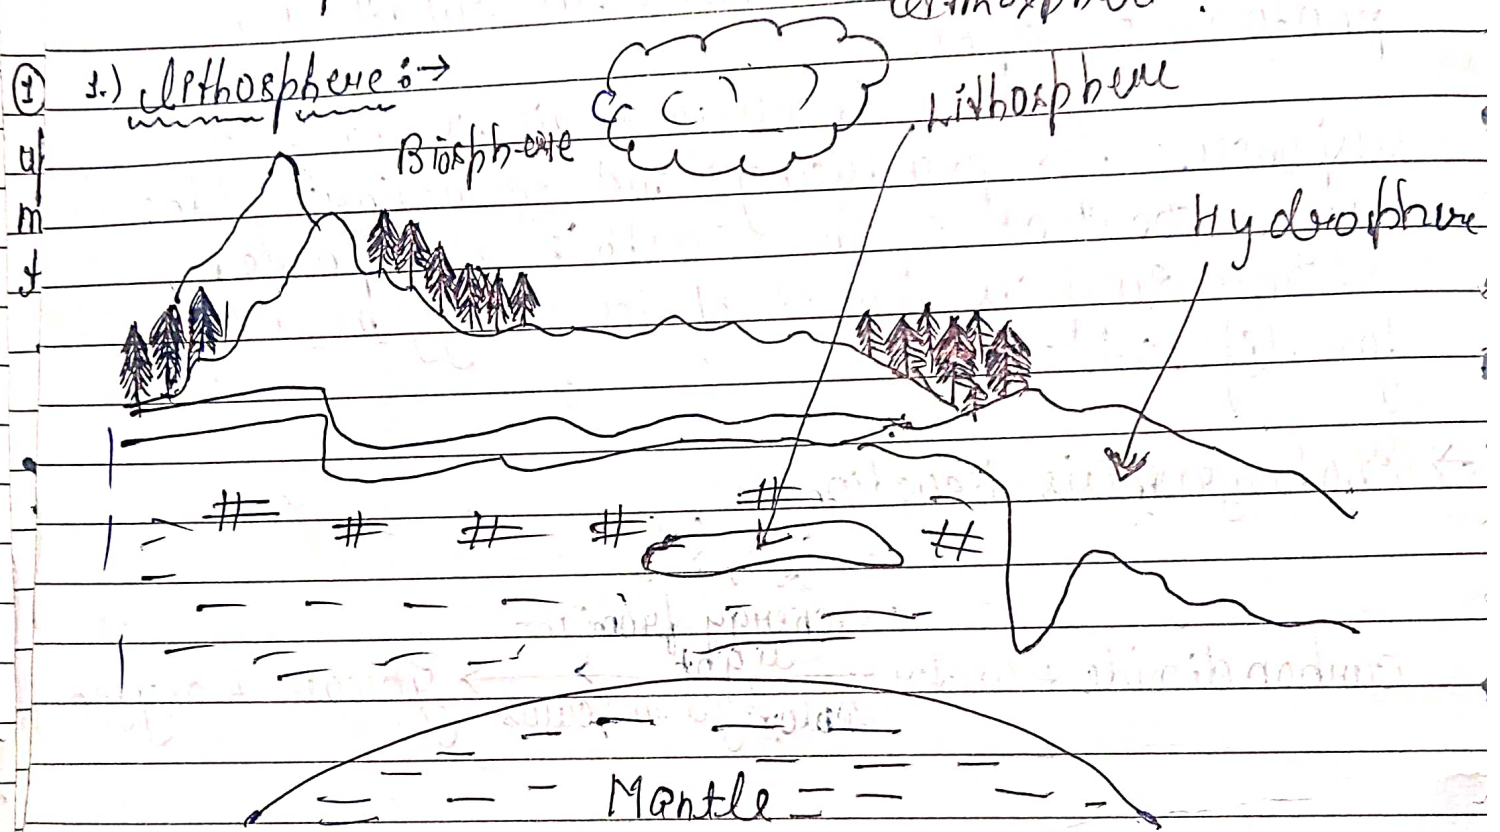 1.) Lithosphere :→
Biosphere
Lithosphere
Hydrosphere
Mantle